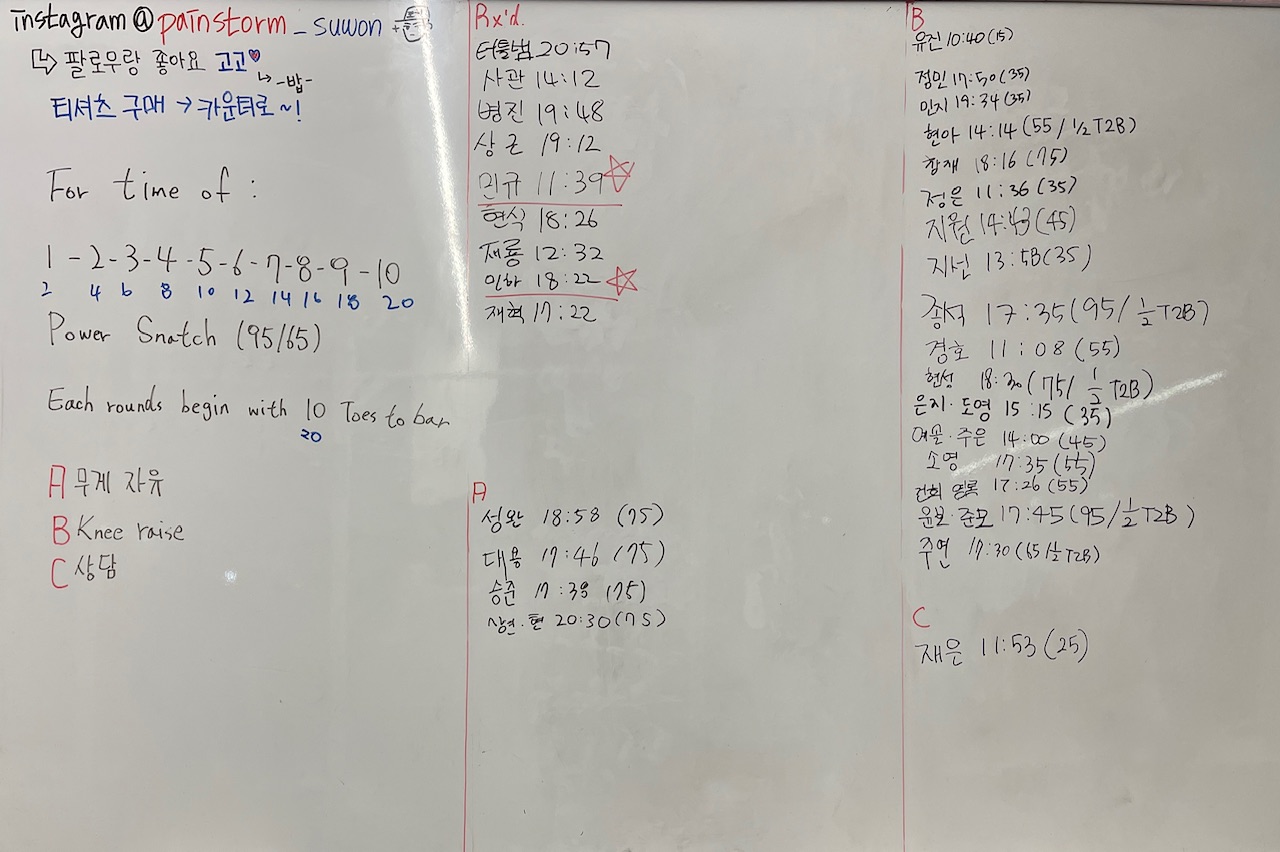 instagram @ painstorm_suwon
팔로우랑 좋아요 고고♥
↳ -밥-
티셔츠 구매 → 카운터로 ~!
For time of :
1 - 2 - 3 - 4 - 5 - 6 - 7 - 8 - 9 - 10
2 4 6 8 10 12 14 16 18 20
Power Snatch (95/65)
Each rounds begin with 10 Toes to bar
20
A 무게 자유
B Knee raise
C 상담
Rx'd.
터틀범 20:57
사관 14:12
병진 19:48
상근 19:12
민규 11:39
현식 18:26
재룡 12:32
인하 18:22
재혁 17:22
A
성완 18:58 (75)
대용 17:46 (75)
승준 17:39 (75)
상연·현 20:30 (75)
B
유진 10:40 (15)
정민 17:50 (35)
민지 19:34 (35)
현아 14:14 (55 / ½ T2B)
창재 18:16 (75)
정은 11:36 (35)
지원 14:43 (45)
지선 13:58 (35)
종석 17:35 (95 / ½ T2B)
경호 11:08 (55)
현성 18:30 (75 / ½ T2B)
은지·도영 15:15 (35)
여솔·주은 14:00 (45)
소영 17:35 (55)
건희 영록 17:26 (55)
윤보·준모 17:45 (95 / ½ T2B)
주연 17:30 (65 / ½ T2B)
C
재은 11:53 (25)